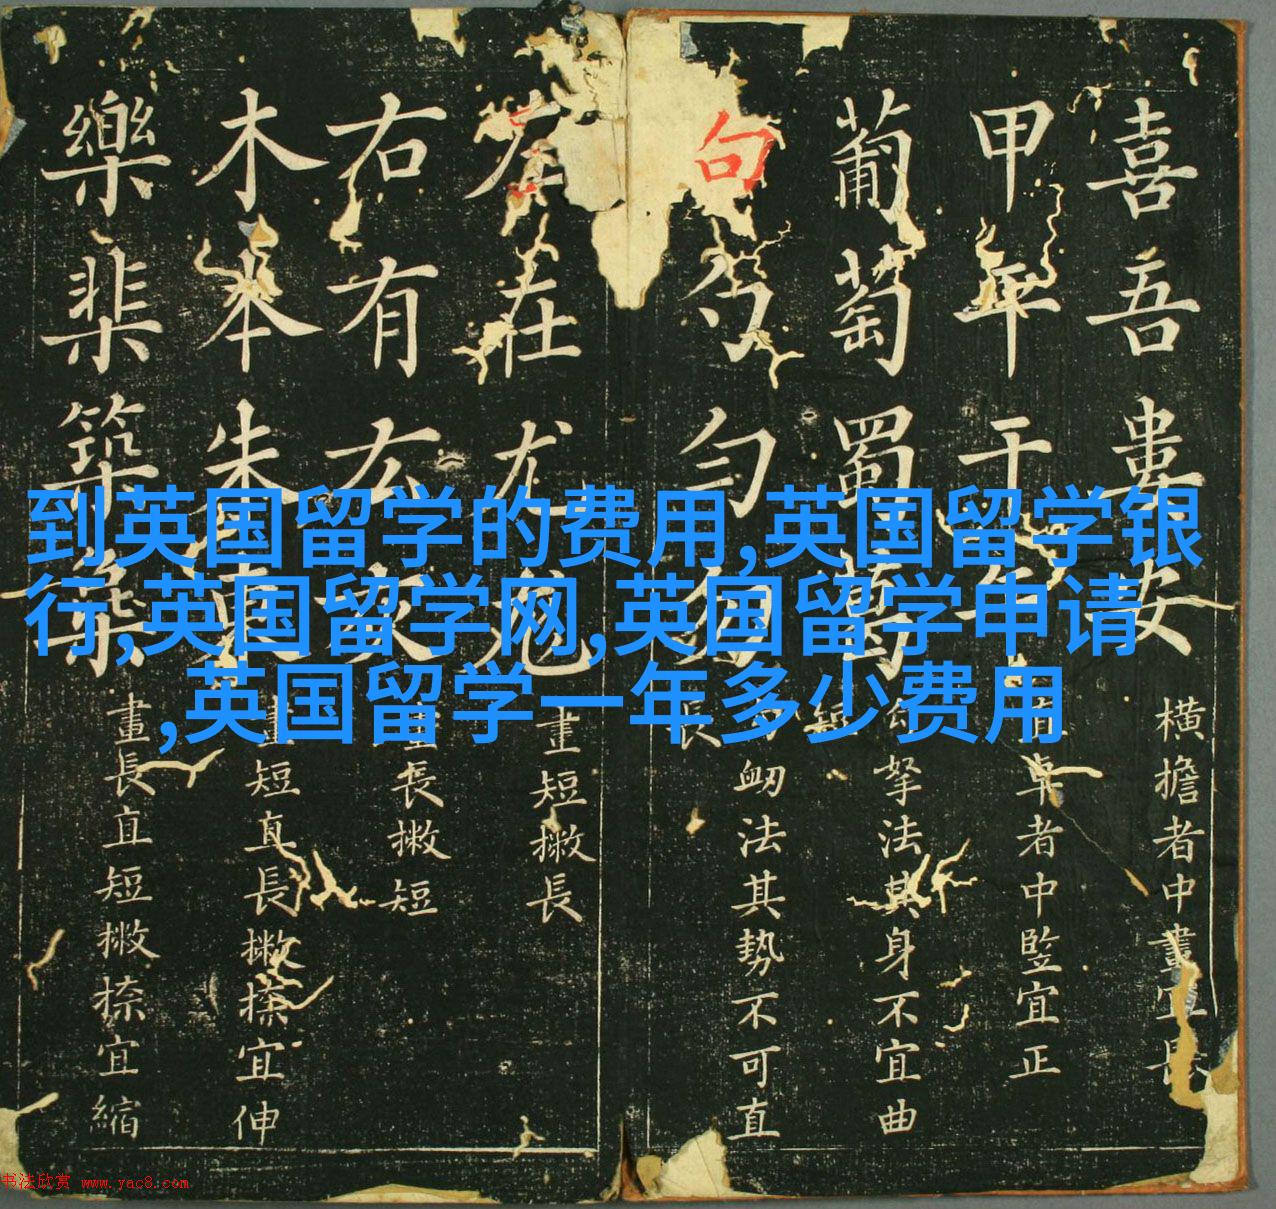 到英国留学的费用,英国留学银
行,英国留学网,英国留学申请
,英国留学一年多少费用
喜吾婁安
横擔者中畫宜長
甲年干午
卓者中竪宜正
葡萄蜀
拏法其身不宜曲
句勹勻
法其勢不可直
左在尤尨
畫短撇長
右有厷灰
畫長撇短
木本朱
畫短直長撇捺宜伸
樂棐築
畫長直短撇捺宜縮
书法欣赏 www.yac8.com